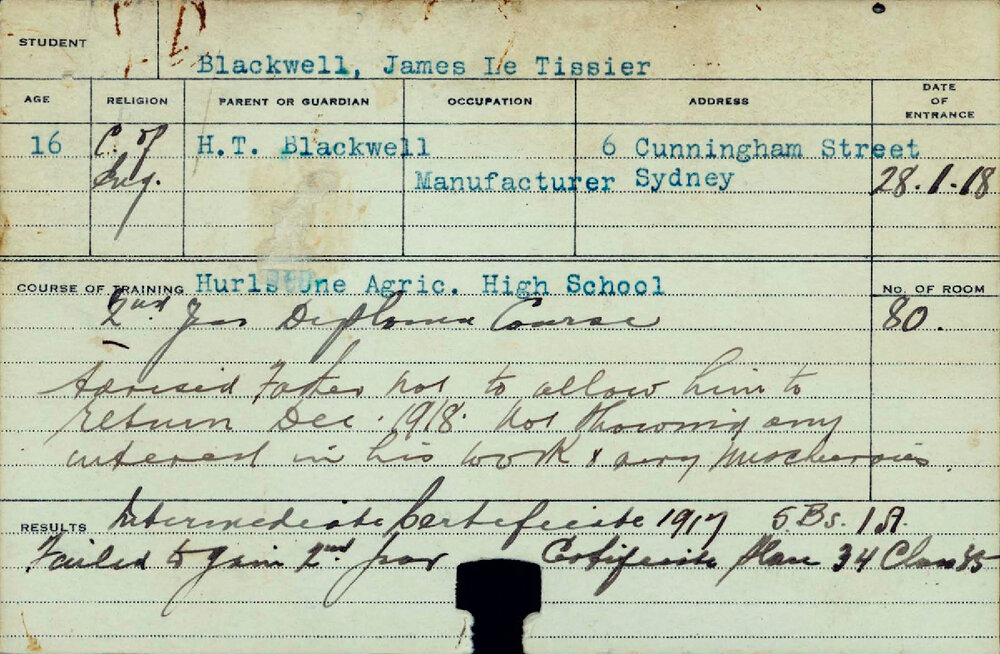 STUDENT
Blackwell, James Le Tissier
AGE RELIGION PARENT OR GUARDIAN OCCUPATION ADDRESS DATE OF ENTRANCE
16 C. of H.T. Blackwell 6 Cunningham Street
Eng. Manufacturer Sydney 28.1.18
COURSE OF TRAINING Hurlstone Agric. High School No. OF ROOM
2nd Year Diploma Course 80.
Advised Father not to allow him to
return Dec. 1918. Not showing any
interest in his work & very mischievous.
RESULTS Intermediate Certificate 1917 5 Bs. 1 A.
Failed to gain 2nd year Certificate Place 34 Class 35